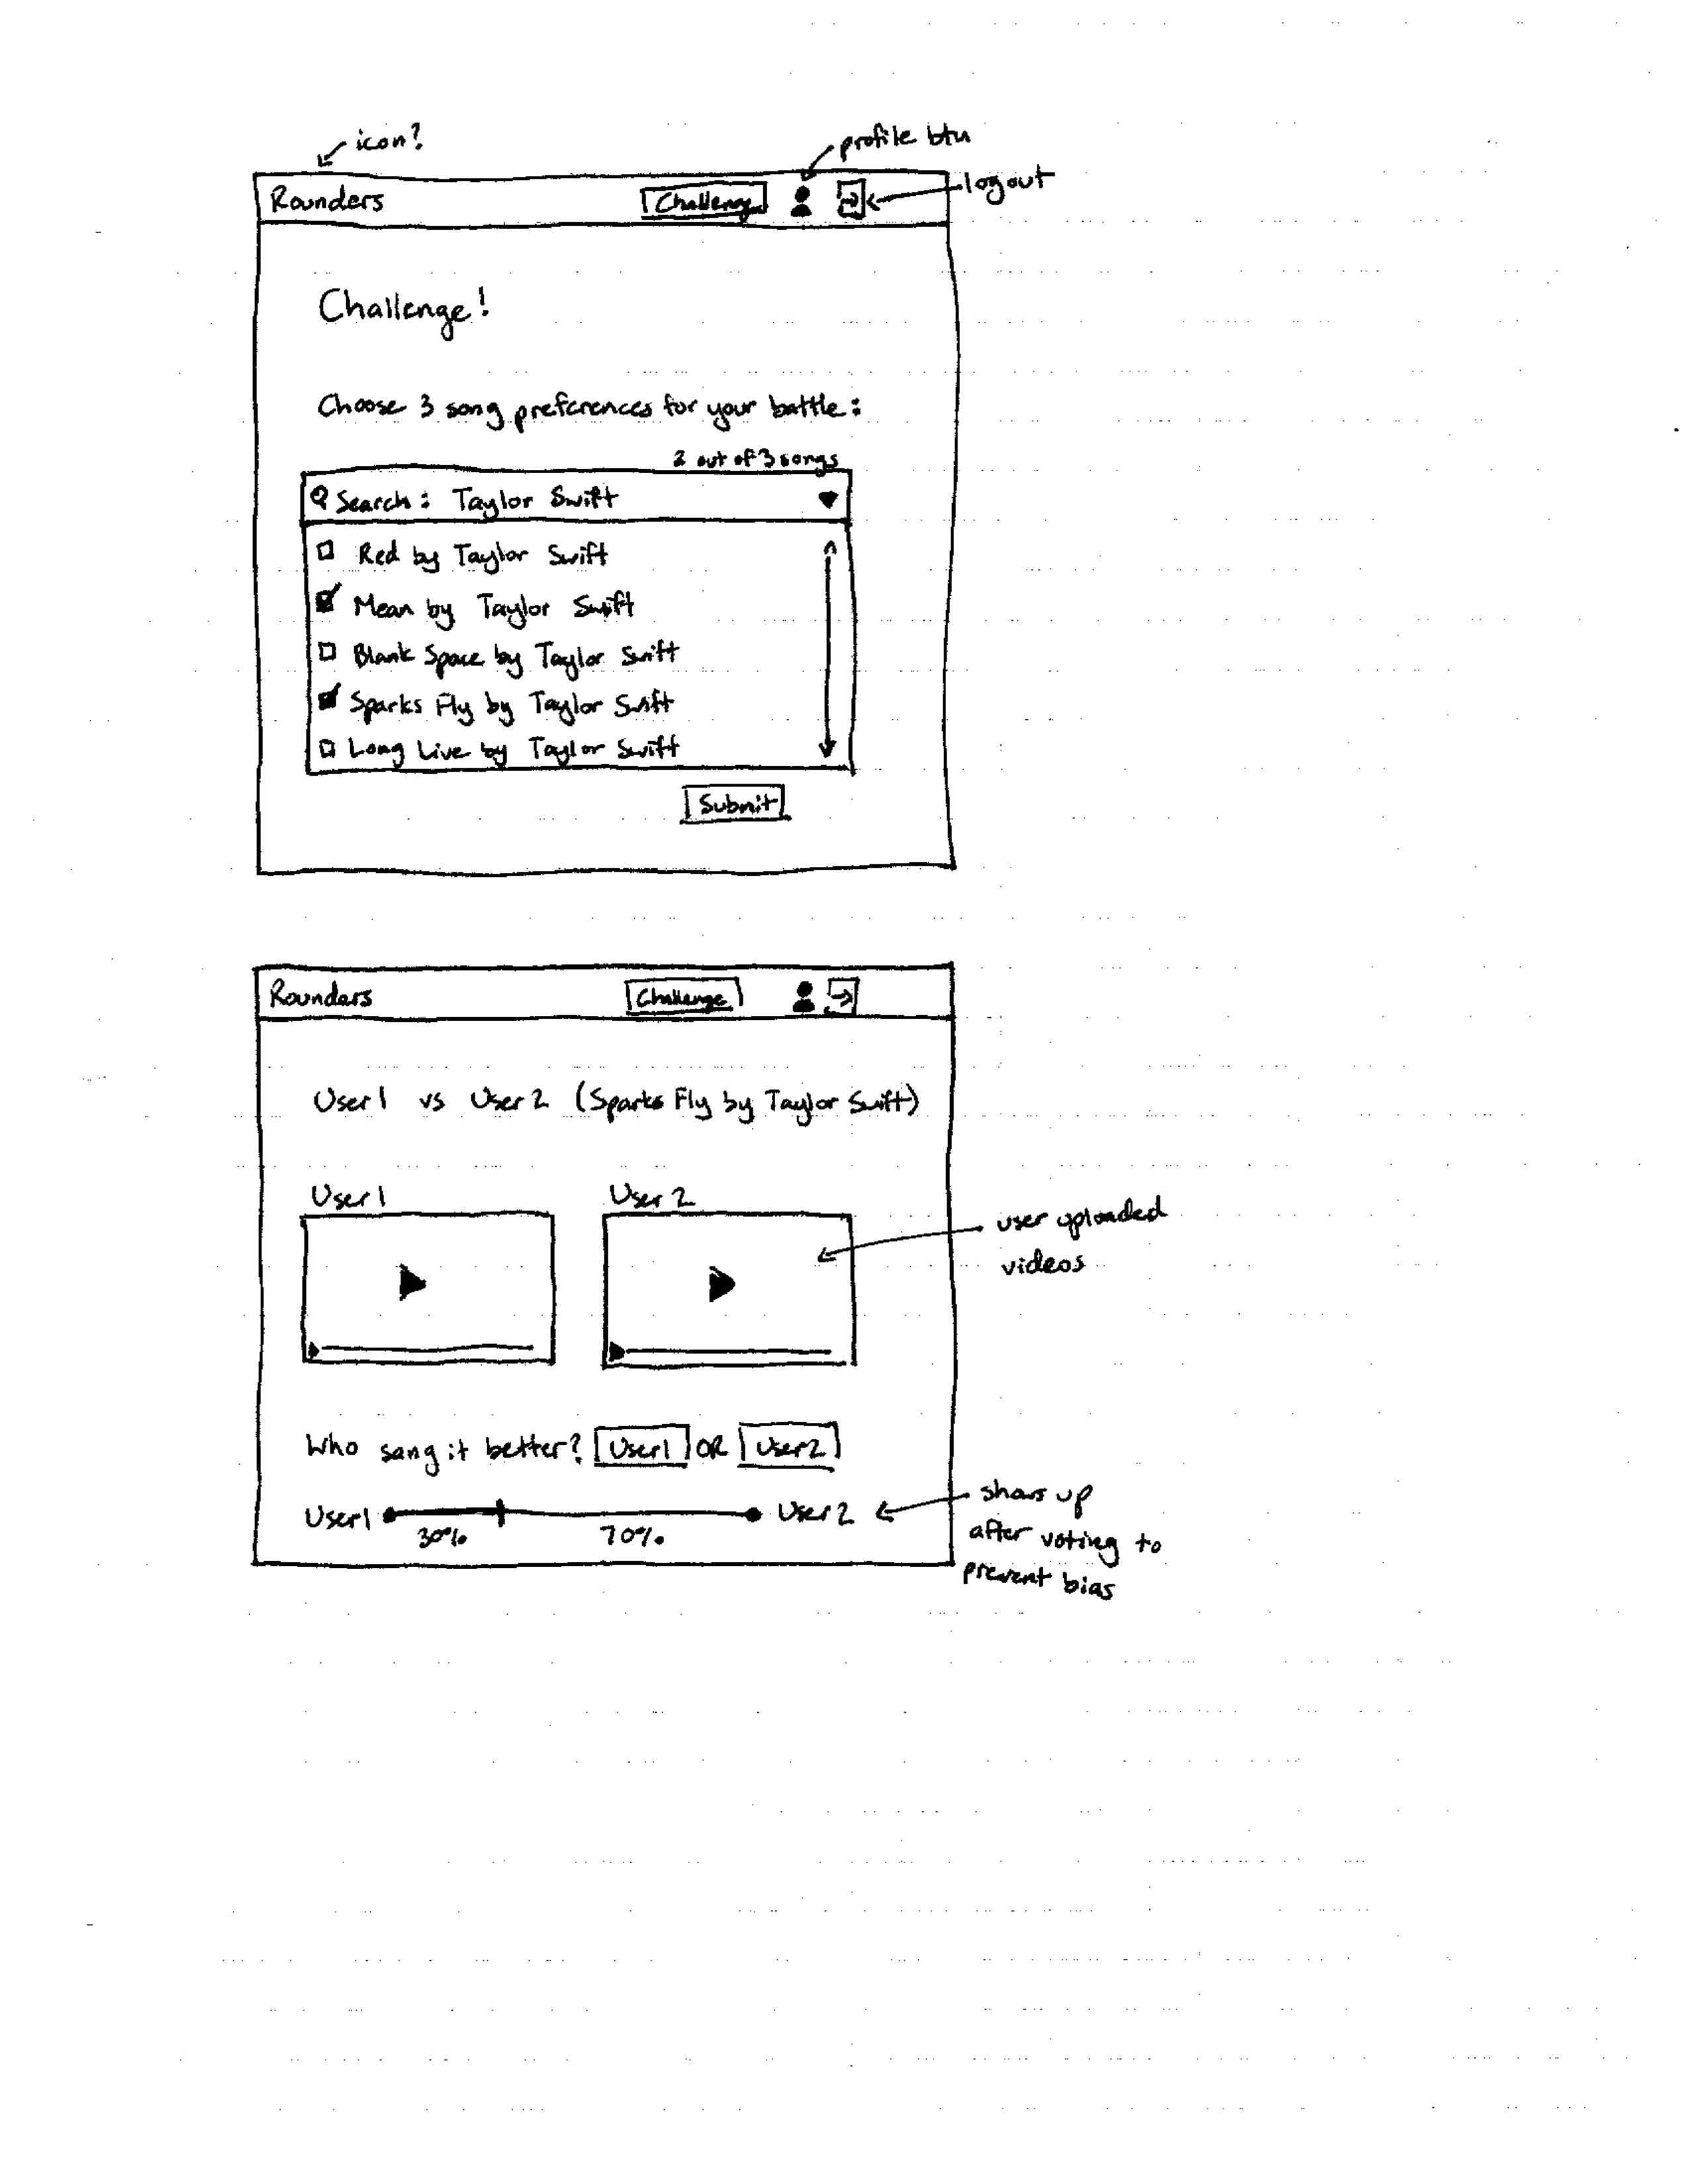 icon?
profile btn
Rounders
Challenge
logout
Challenge!
Choose 3 song preferences for your battle:
2 out of 3 songs
Search: Taylor Swift
Red by Taylor Swift
Mean by Taylor Swift
Blank Space by Taylor Swift
Sparks Fly by Taylor Swift
Long Live by Taylor Swift
Submit
Rounders
Challenge
User 1 vs User 2 (Sparks Fly by Taylor Swift)
User 1
User 2
user uploaded
videos
Who sang it better? User1 OR User2
User1
User 2
30%
70%
shows up
after voting to
prevent bias